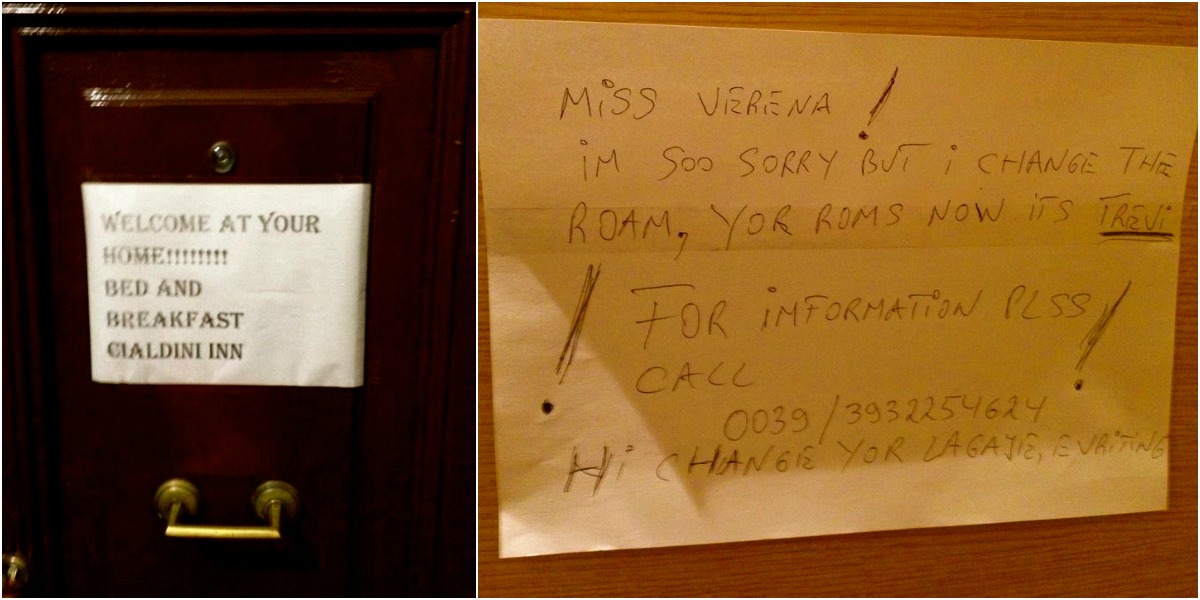 WELCOME AT YOUR
HOME!!!!!!!!
BED AND
BREAKFAST
CIALDINI INN
MiSS VERENA !
iM SOO SORRY BUT i CHANGE THE
ROAM, YOR ROMS NOW iTS TREVi
! FOR iMFORMATiON PLSS !
CALL
0039/3932254624
Hi CHANGE YOR LAGAJE, EVRiTiNG